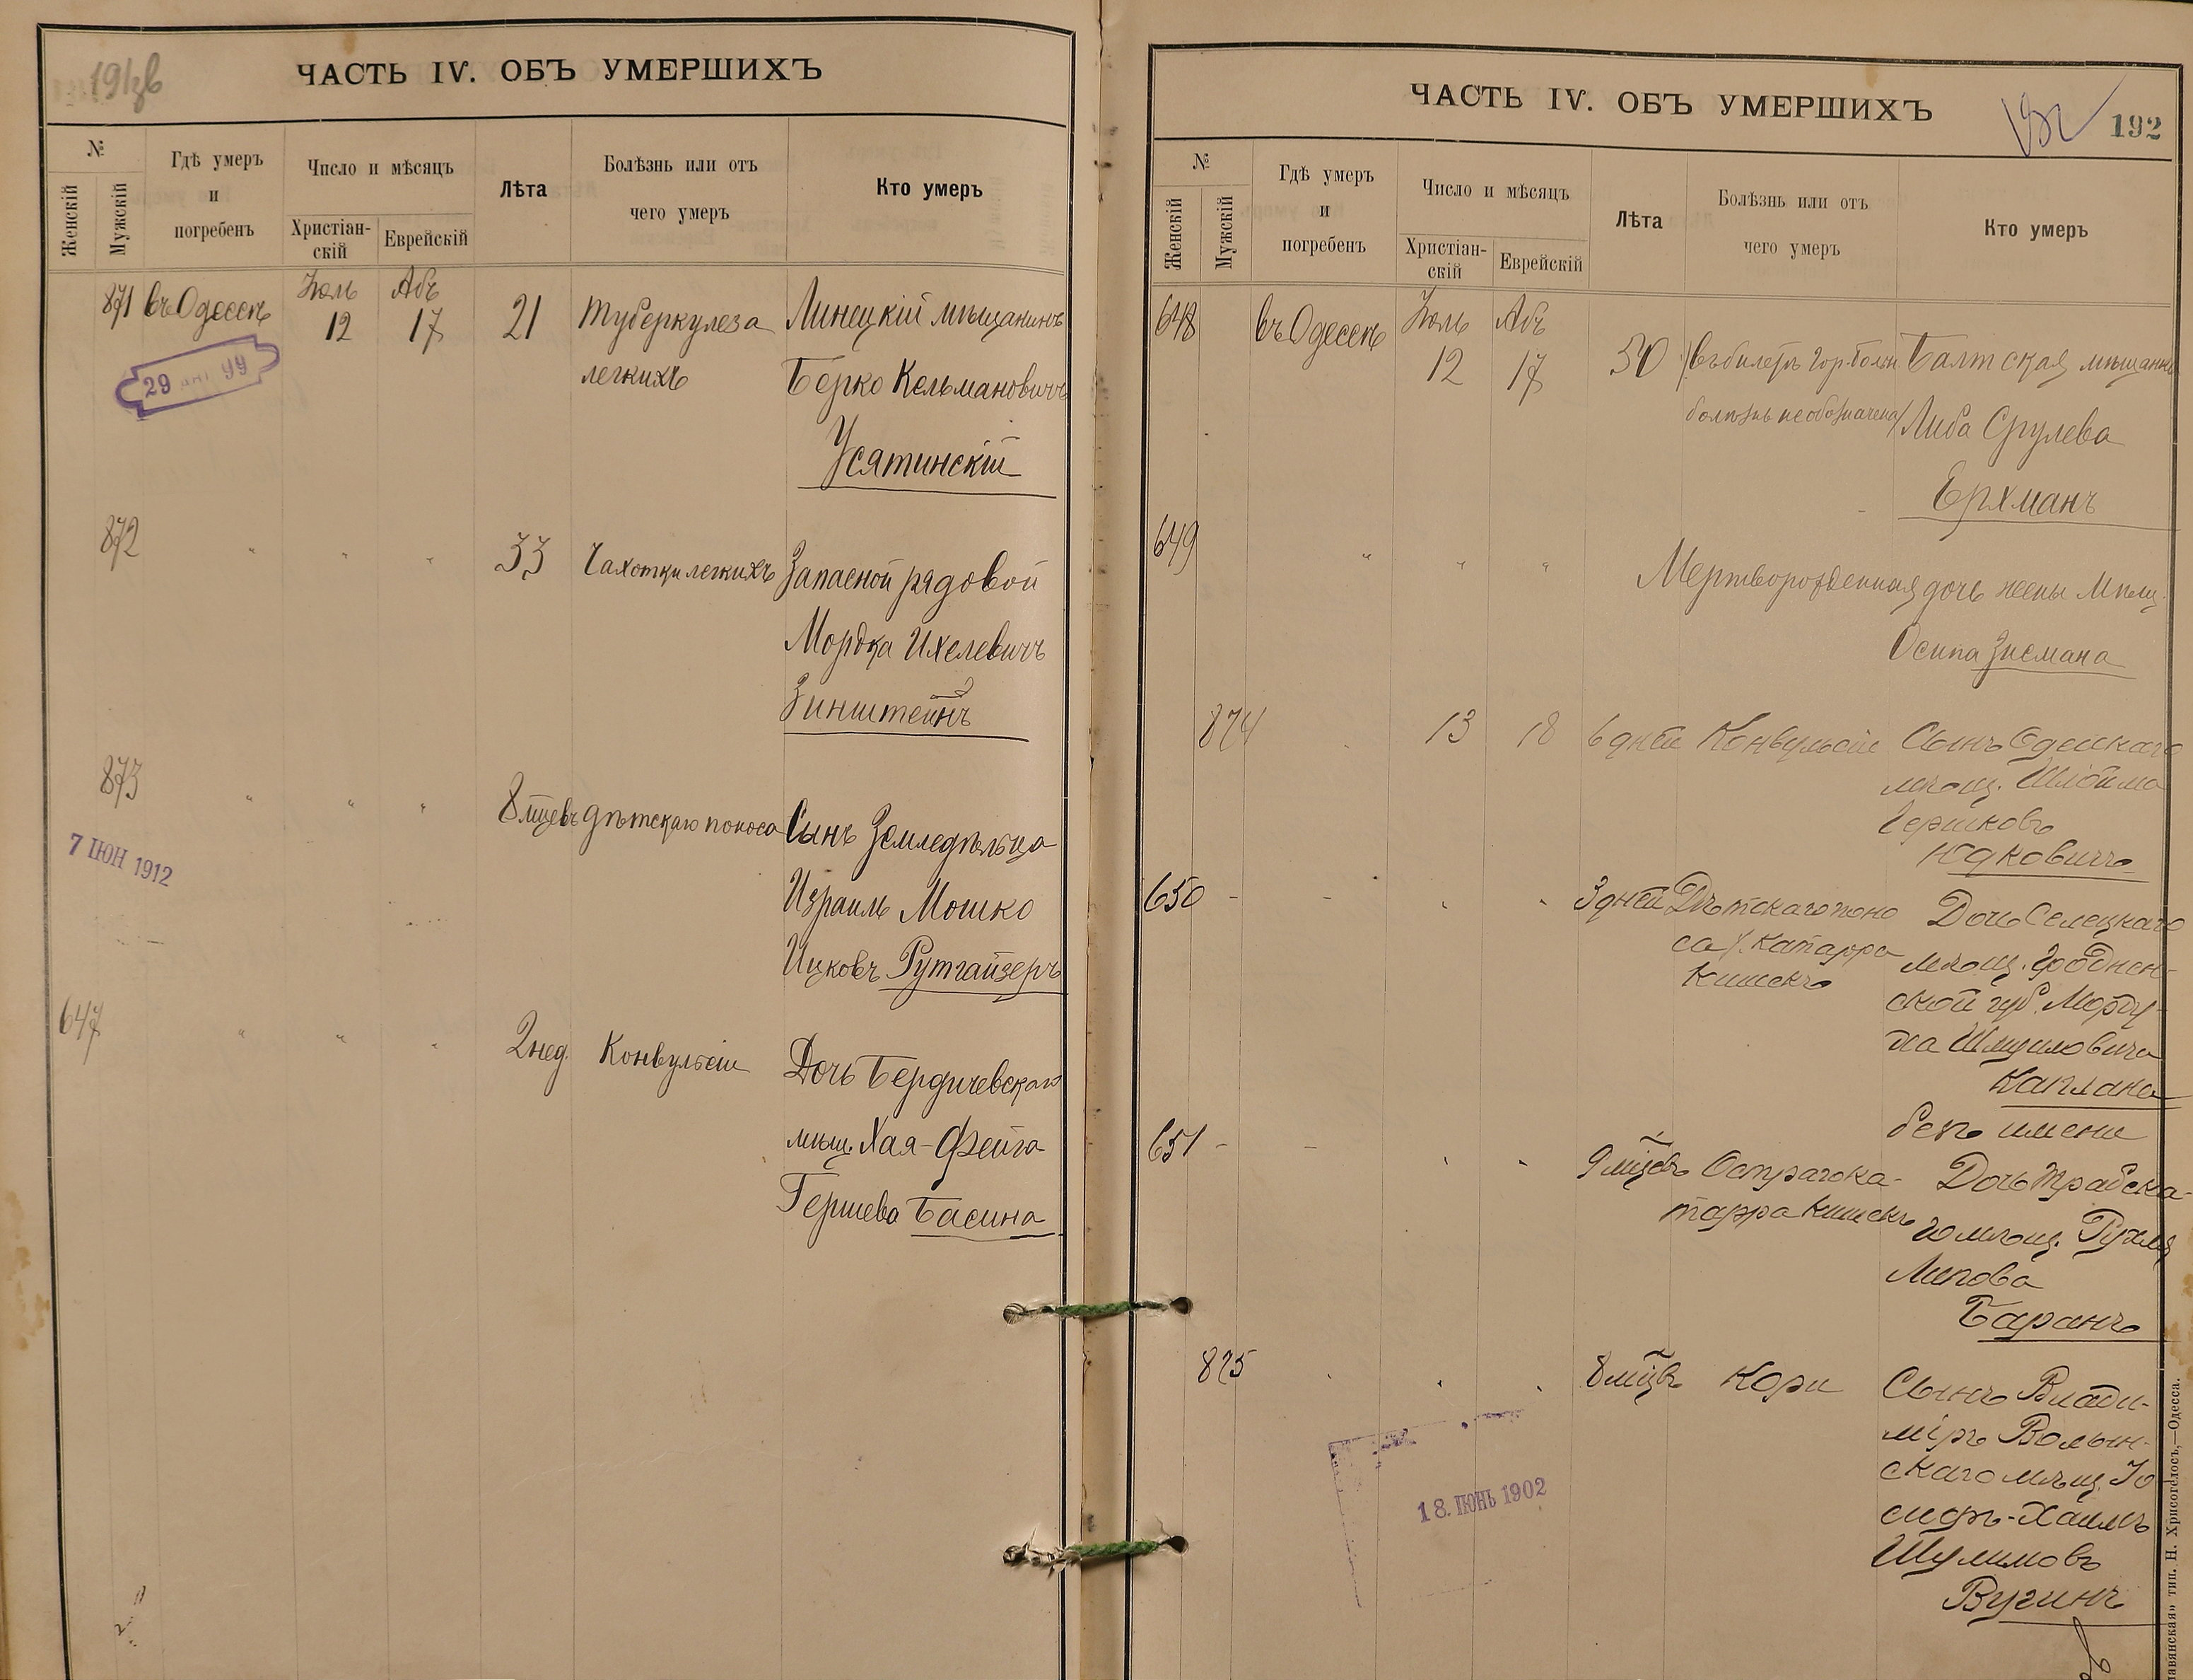 ЧАСТЬ IV. ОБЪ УМЕРШИХЪ
№
Женскій
Мужскій
Гдѣ умеръ
и
погребенъ
Число и мѣсяцъ
Христіан-
скій
Еврейскій
Лѣта
Болѣзнь или отъ
чего умеръ
Кто умеръ
871 въ Одессѣ Іюль 12 Абъ 17 21 туберкулеза Линецкій мѣщанинъ
легкихъ Берко Кельмановичъ
Усятинскій
29 99
872 " " " 33 Чахотки легкихъ Запасной рядовой
Мордка Ихелевичъ
Зинштейнъ
873 " " " 8 мцевъ дѣтскаго поноса Сынъ Земледѣльца
Израиль Мошко
Ицковъ Рутгайзеръ
7 ІЮН 1912
647 " " " 2 нед. Конвульсіи Дочь Бердичевскаго
мѣщ. Хая-Фейга
Гершева Басина
ЧАСТЬ IV. ОБЪ УМЕРШИХЪ
192
№
Женскій
Мужскій
Гдѣ умеръ
и
погребенъ
Число и мѣсяцъ
Христіан-
скій
Еврейскій
Лѣта
Болѣзнь или отъ
чего умеръ
Кто умеръ
648 въ Одессѣ Іюль 12 Абъ 17 50 (въ билетѣ гор. больн. Балтская мѣщанка
болѣзнь не обозначена) Либа Срулева
Ерхманъ
649 " " " Мертворожденная дочь жены Мѣщ.
Осипа Зисмана
874 13 18 6 дней Конвульсіи Сынъ Одесскаго
мѣщ. Шлойма
Гершковъ
Юдковичъ
650 - - 3 дней Дѣтскаго поно Дочь Селецкаго
са /. катарра мѣщ. Гроднен-
кишекъ ской губ. Морду-
ха Шмуиловича
Каплана
безъ имени
651 - - 9 мцевъ Остраго ка- Дочь Трабска-
тарра кишекъ го мѣщ. Рухля
Липова
Баранъ
875 8 мцвъ Кори Сынъ Влади-
міръ Волын-
скаго мѣщ. Іо
сифъ-Хаимъ
Шулимовъ
Вугинъ
18. ІЮНЬ 1902
тип. Н. Хрисогелосъ,—Одесса.